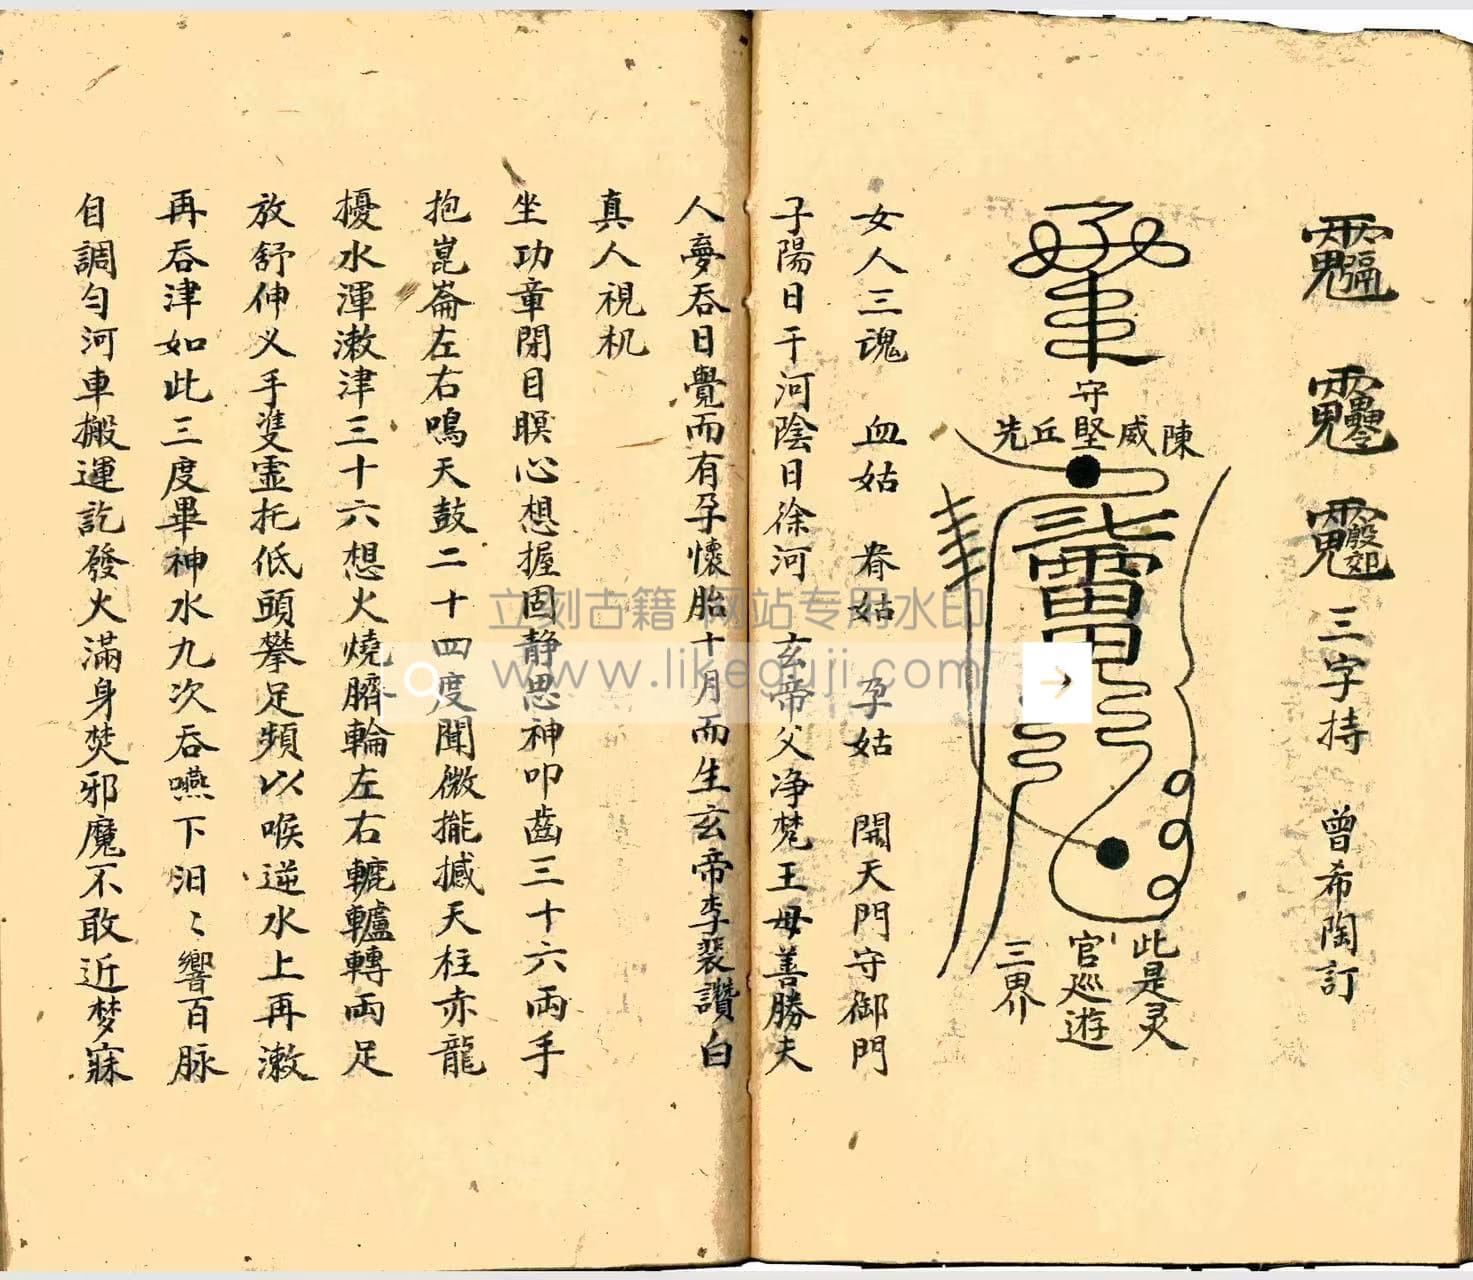 三字持 曾希陶訂
守
陳威堅丘先
雷
此是灵
官巡遊
三界
女人三魂 血姑 眷姑 孕姑 開天門守御門
子陽日干河陰日徐河 玄帝父净梵王母善勝夫
人夢吞日覺而有孕懷胎十月而生玄帝李裴讚白
真人視机
坐功章閉目瞑心想握固静思神叩齒三十六両手
抱崑崙左右鳴天鼓二十四度聞微擺撼天柱赤龍
擾水渾漱津三十六想火燒臍輪左右轆轤轉両足
放舒伸义手䨇灵托低頭攀足頻以喉逆水上再漱
再吞津如此三度畢神水九次吞嚥下汨〻響百脉
自調匀河車搬運訖發火滿身焚邪魔不敢近梦寐
立刻古籍 网站专用水印
www.likeguji.com